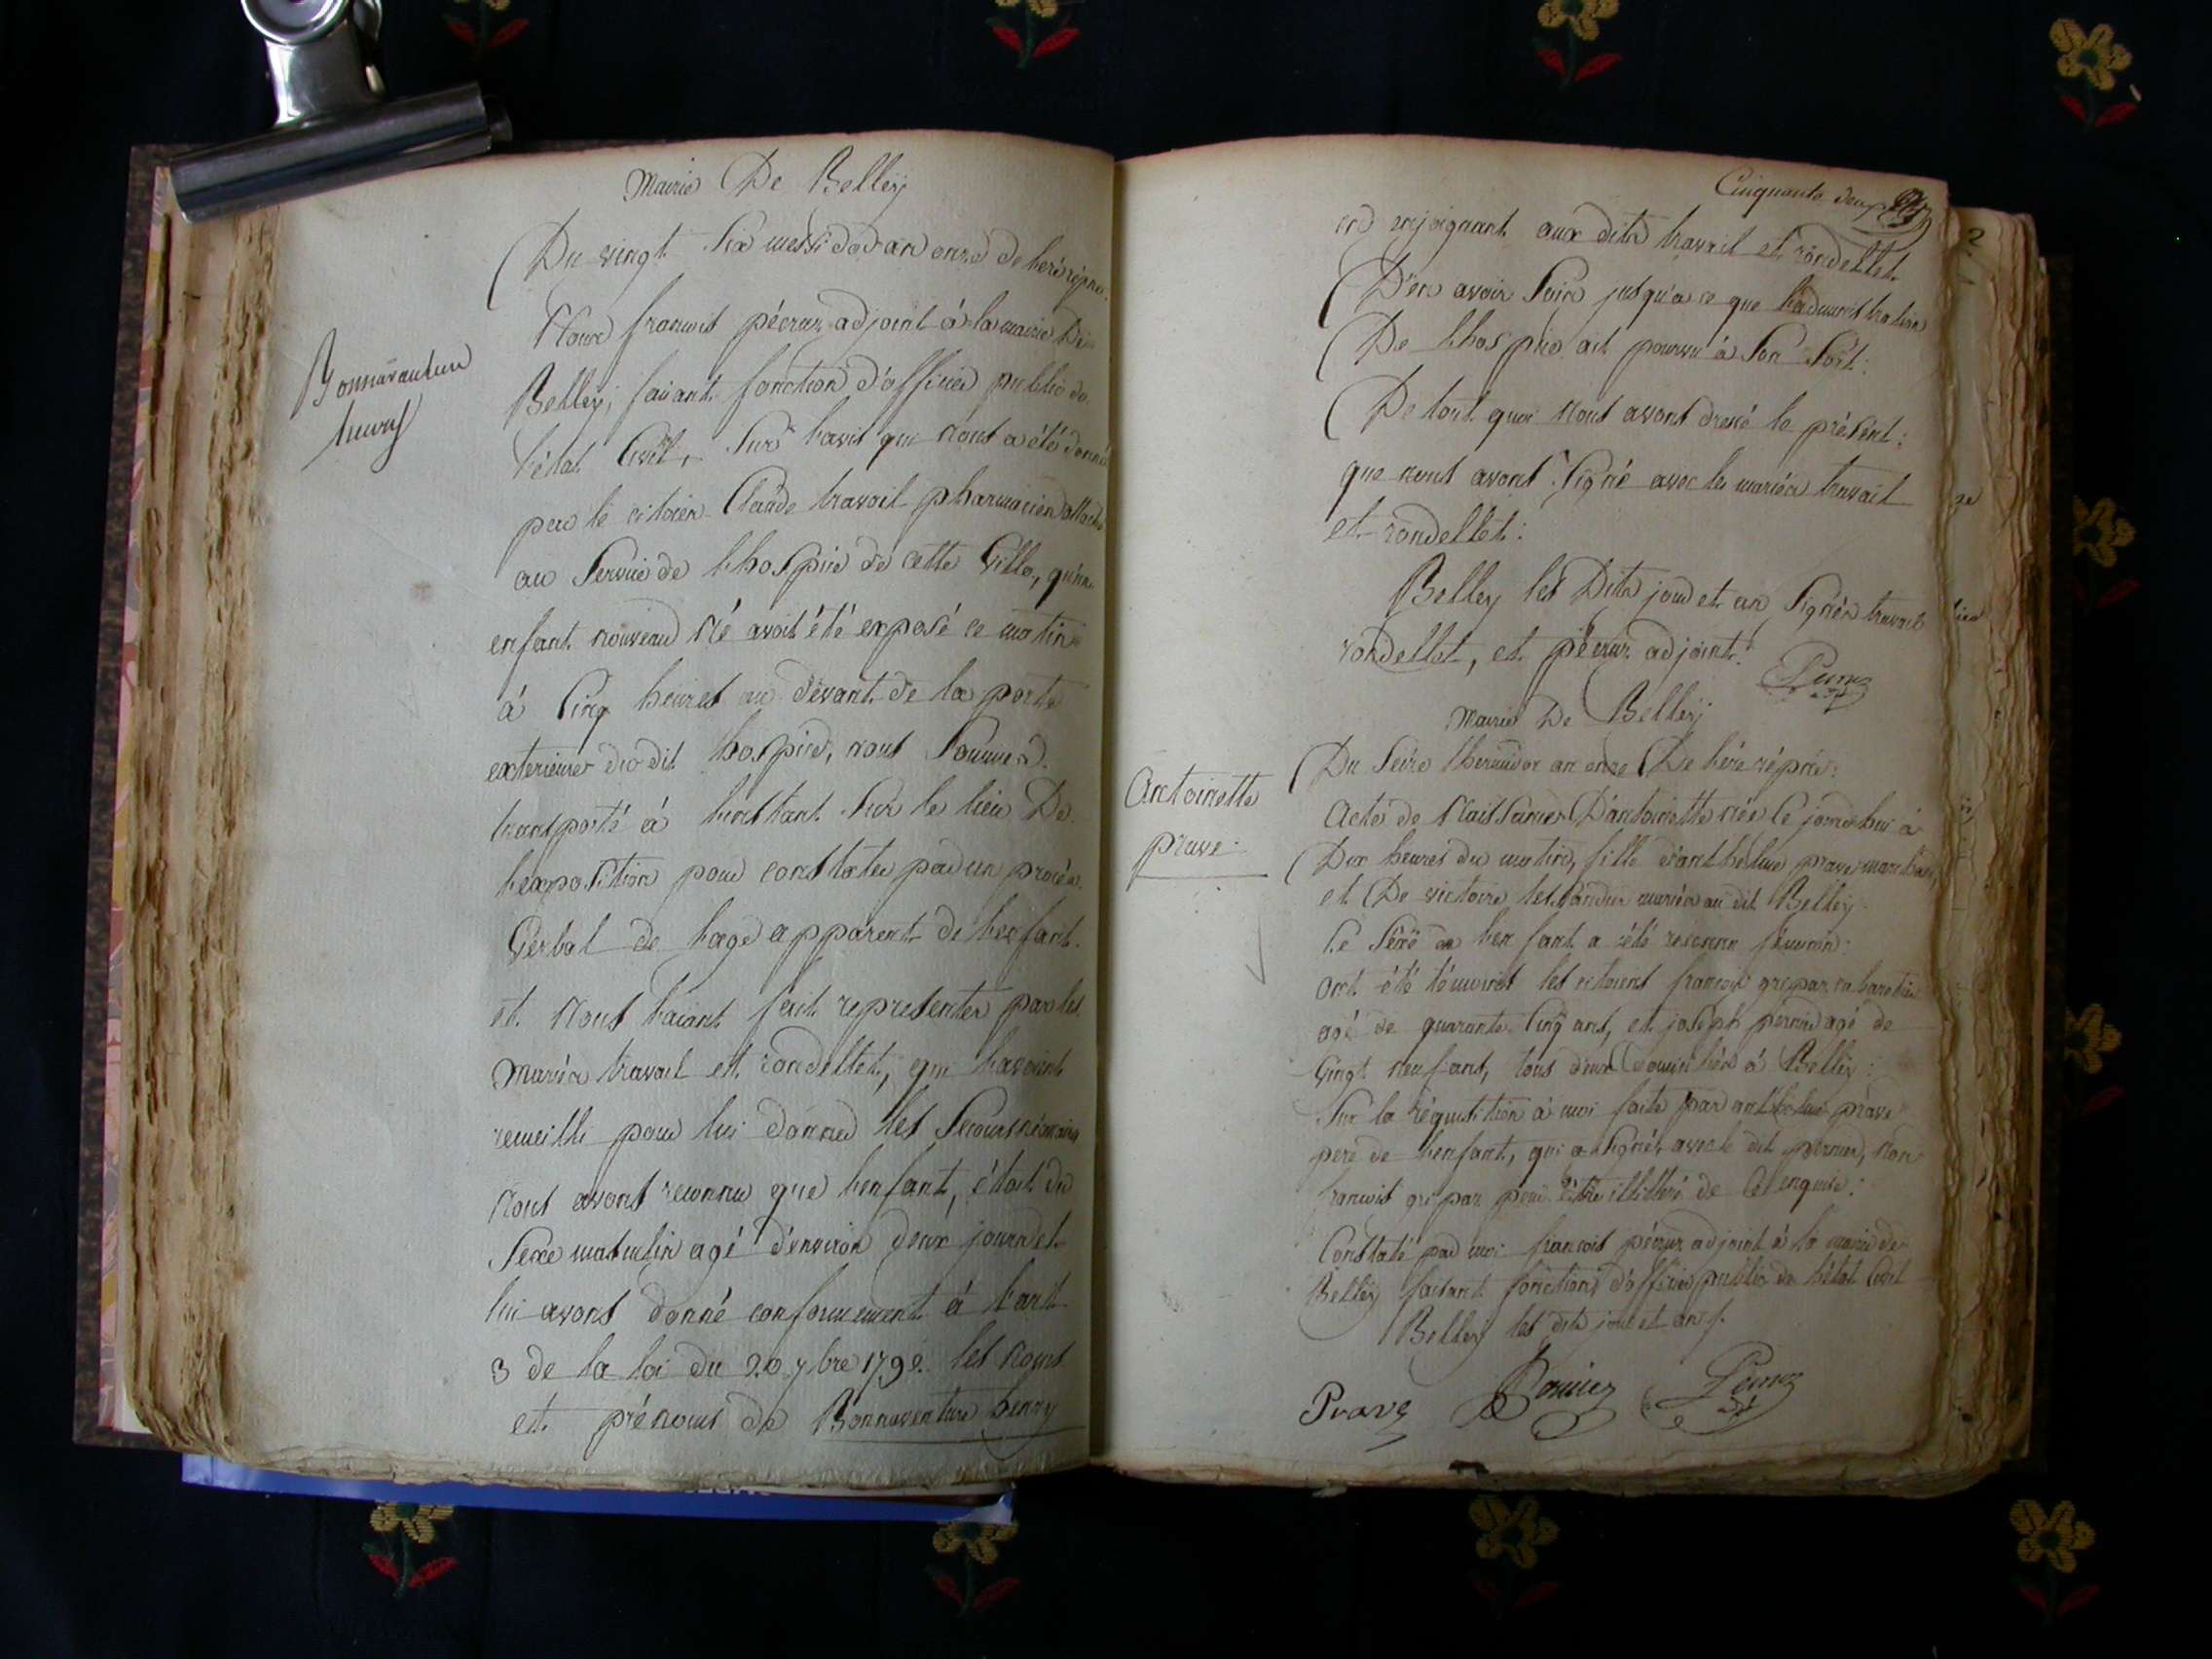 Mairie De Belley
Du vingt Six messidor an onze de l'ere répne.
Nous francois péeruz adjoint à la mairie De
Belley, faisant fonction d'officier public de
l'état Civil, Sur l'avis qui Nous a été donné
par le citoien Claude travail pharmacien attaché
au Service de l'hospice de cette Ville, qu'un
enfant nouveau Né avoit été exposé ce matin
à Cinq heures au devant de la porte
exterieure du dit hospice, nous Sommes
transporté à l'instant Sur le lieu De
l'exposition pour constater par un procès
Verbal de l'age apparent de l'enfant.
et Nous l'aiant fait representer par les
mariés travail et rondellet, qui l'avoient
recueilli pour lui donner les Secours nécessaires
Nous avons reconnu que l'enfant, étoit du
Sexe masculin agé d'environ deux jours et
lui avons donné conformement à l'art.
3 de la loi du 20 7bre 1792. les Noms
et prénoms de Bonnaventure henry
Bonnaventure
henry
Cinquante deux
en enjoignant aux dits travail et rondellet
D'en avoir Soin jusqu'a ce que l'administration
De l'hospice ait pourvu à Son Sort:
De tout quoi Nous avons dressé le présent:
que nous avons Signé avec les mariés travail
et rondellet:
Belley les Dits jour et an Signés travail
rondellet, et péeruz adjoint.
mairie De Belley
Antoinette
prave
Du Seize thermidor an onze De l'ère répne:
Acte de Naissance D'antoinette née ce jourdhui à
Dix heures du matin, fille d'anthelme prave marchand,
et De victoire mariés au dit Belley
Le Sexe de l'enfant a été reconnu féminin:
ont été témoins les citoiens francois gripaz cabaretier
agé de quarante Cinq ans, et joseph pernin agé de
Vingt neuf ans, tous deux Domiciliés à Belley:
Sur la réquisition à moi faite par anthelme prave
pere de l'enfant, qui a Signé, avec le dit Non
francois gripaz pour être illitéré de Ce enquis:
Constaté par moi francois péeruz adjoint à la mairie de
Belley faisant fonctions d'officier public de l'état Civil
Belley les dits jour et an /.
Prave